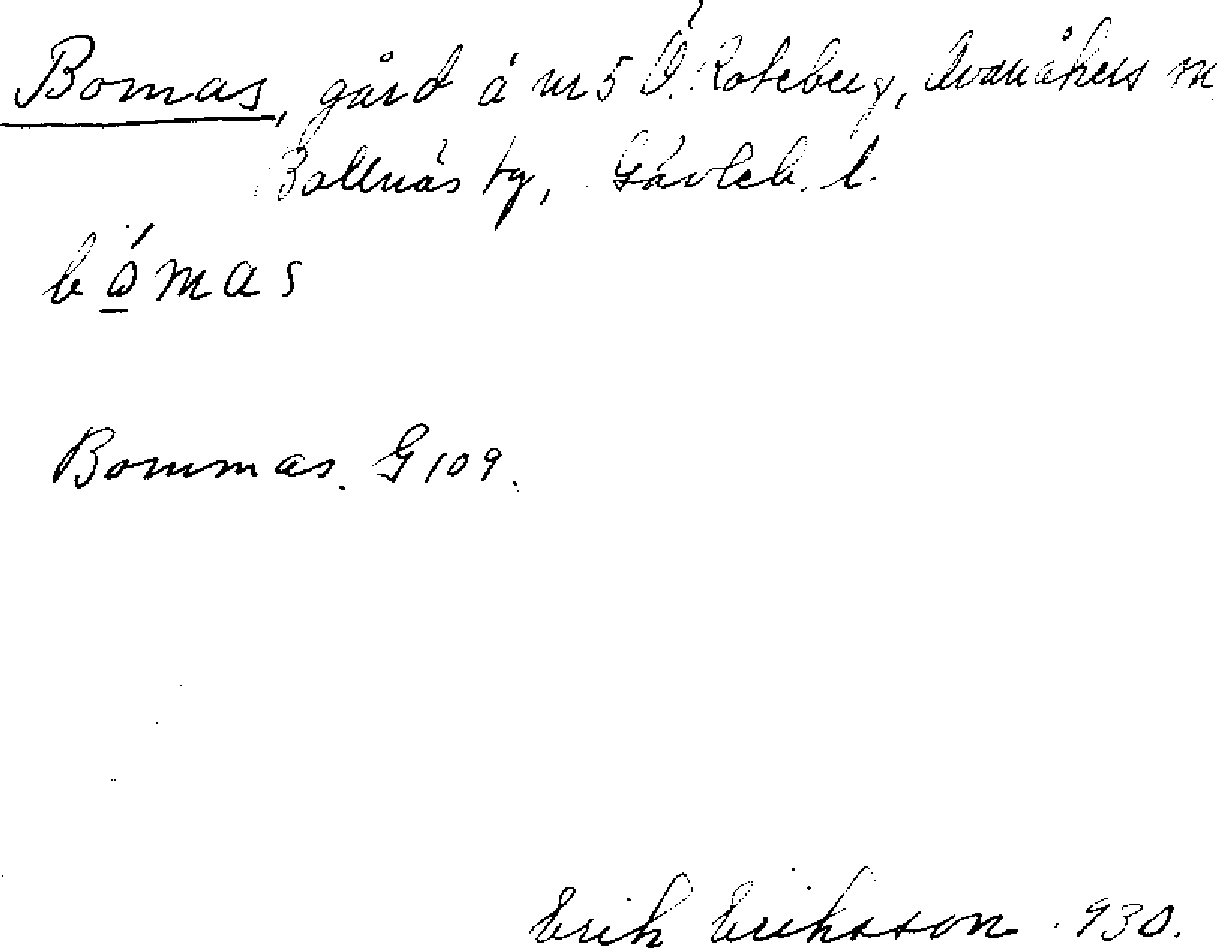 Bomas, gård å nr 5 Ö. Roteberg, Ovanåkers m
Bollnäs tg, Gävleb. l.
bo̱mas
Bommas. G 109.
Erik Eriksson 930.